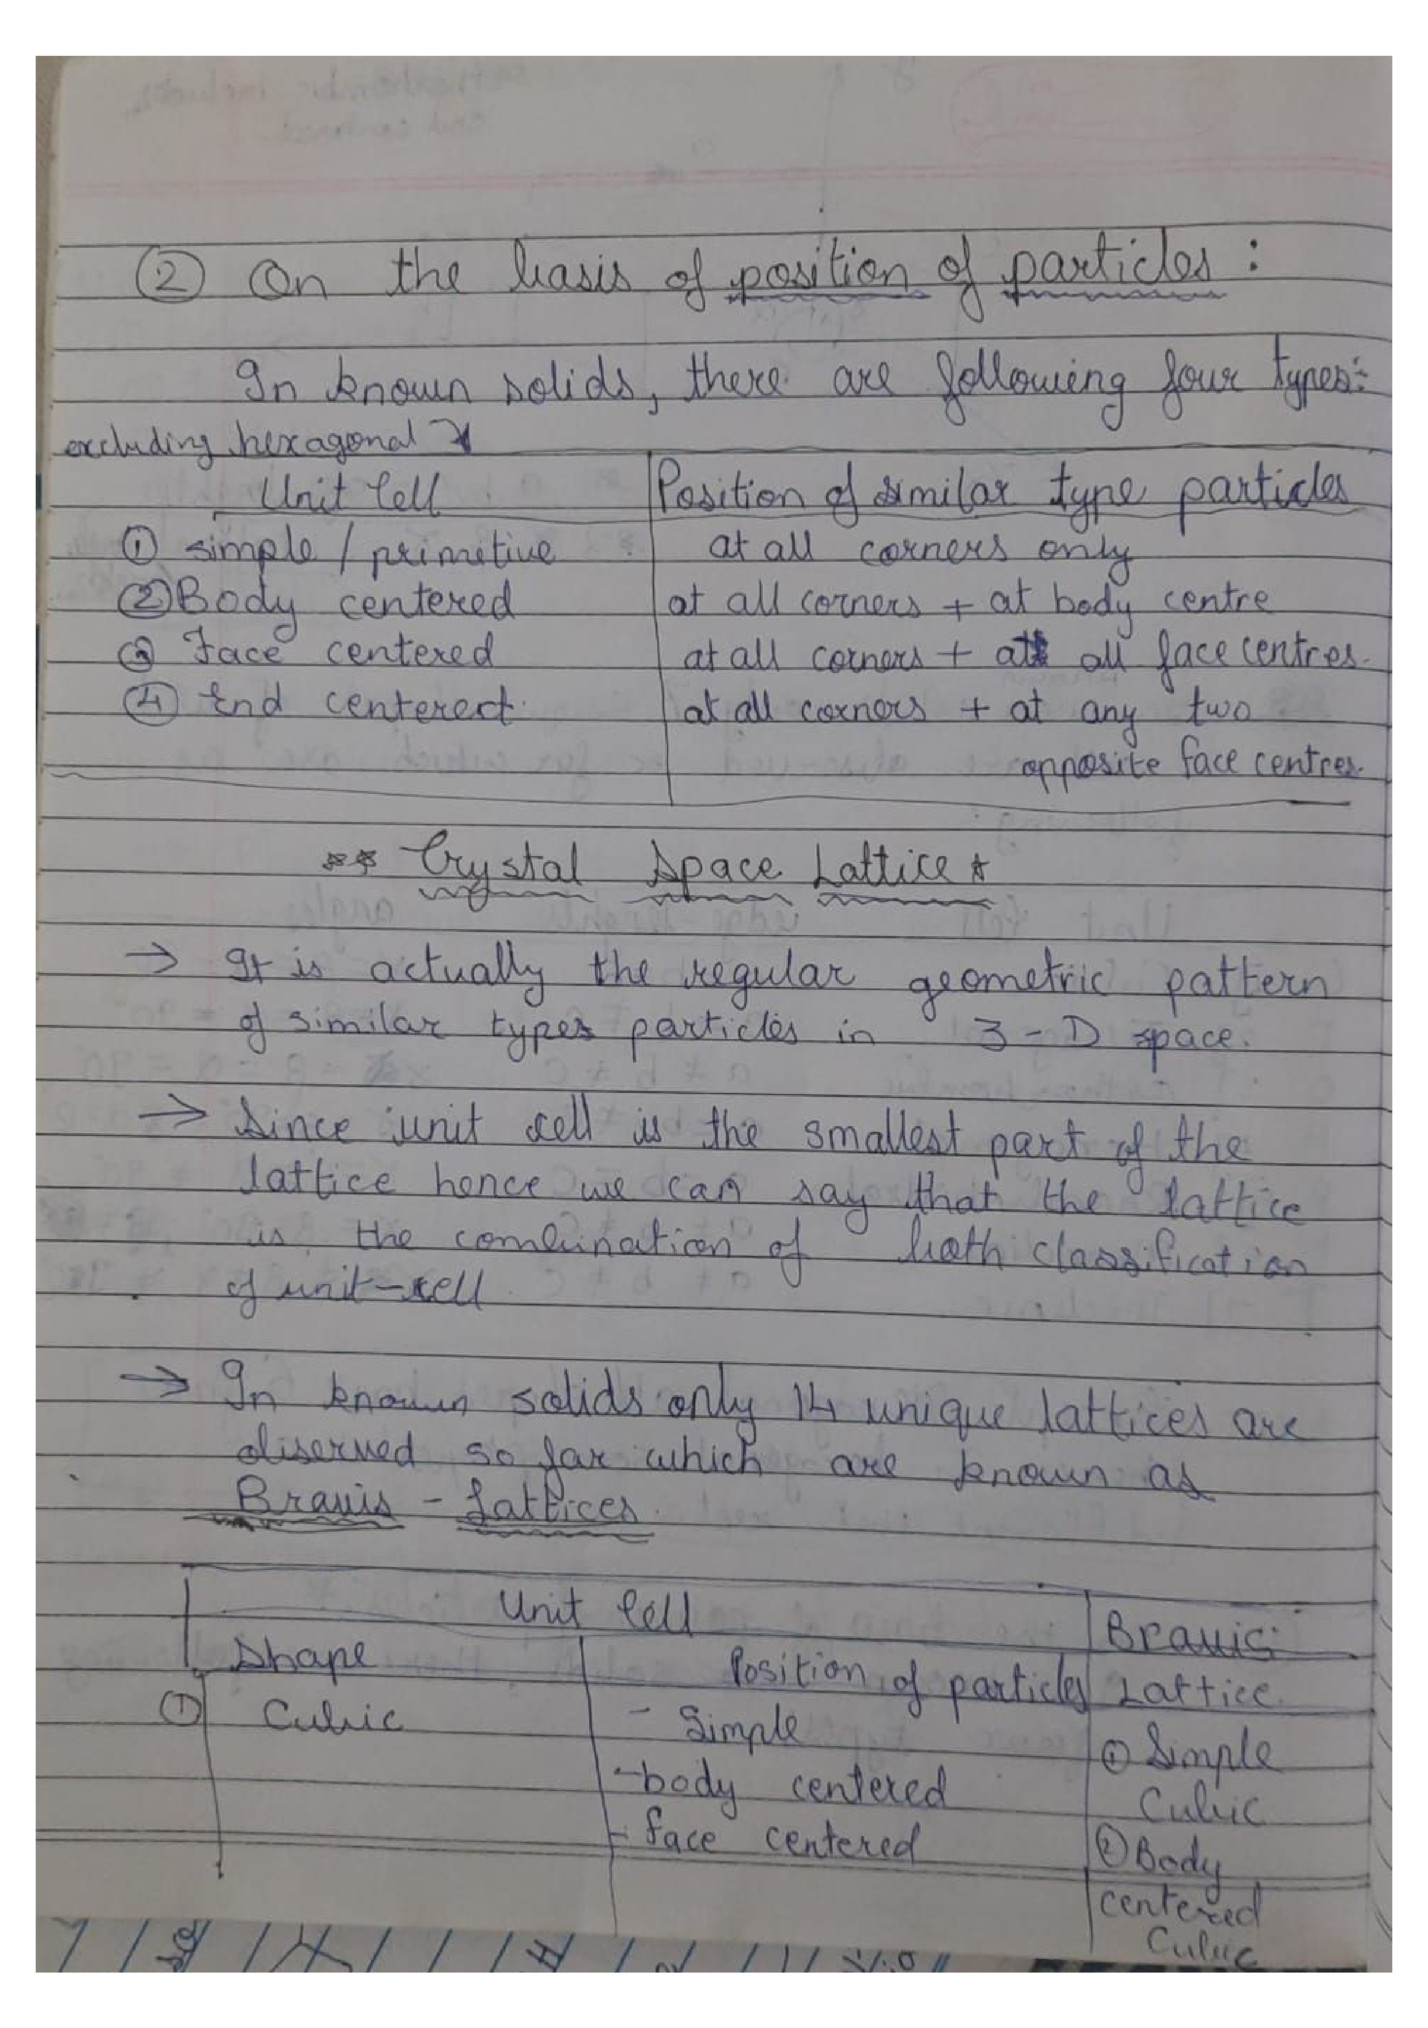 ② On the basis of position of particles :
In known solids, there are following four types:-
excluding hexagonal
Unit Cell | Position of similar type particles
① simple / primitive | at all corners only
② Body centered | at all corners + at body centre
③ Face centered | at all corners + at all face centres.
④ End centered. | at all corners + at any two
opposite face centres.
** Crystal Space Lattice *
→ It is actually the regular geometric pattern
of similar types particles in 3-D space.
→ Since unit cell is the smallest part of the
lattice hence we can say that the lattice
is the combination of both classification
of unit-cell
→ In known solids only 14 unique lattices are
observed so far which are known as
Bravis - Lattices.
Unit Cell | Bravis
Shape | Position of particles | Lattice
① Cubic | - Simple | ① Simple
- body centered | Cubic
- face centered | ② Body
centered
Cubic